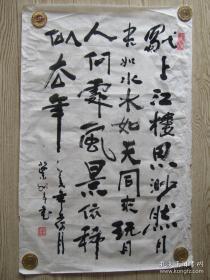 獨上江樓思渺然月
光如水水如天同來玩月
人何處風景依稀
似去年